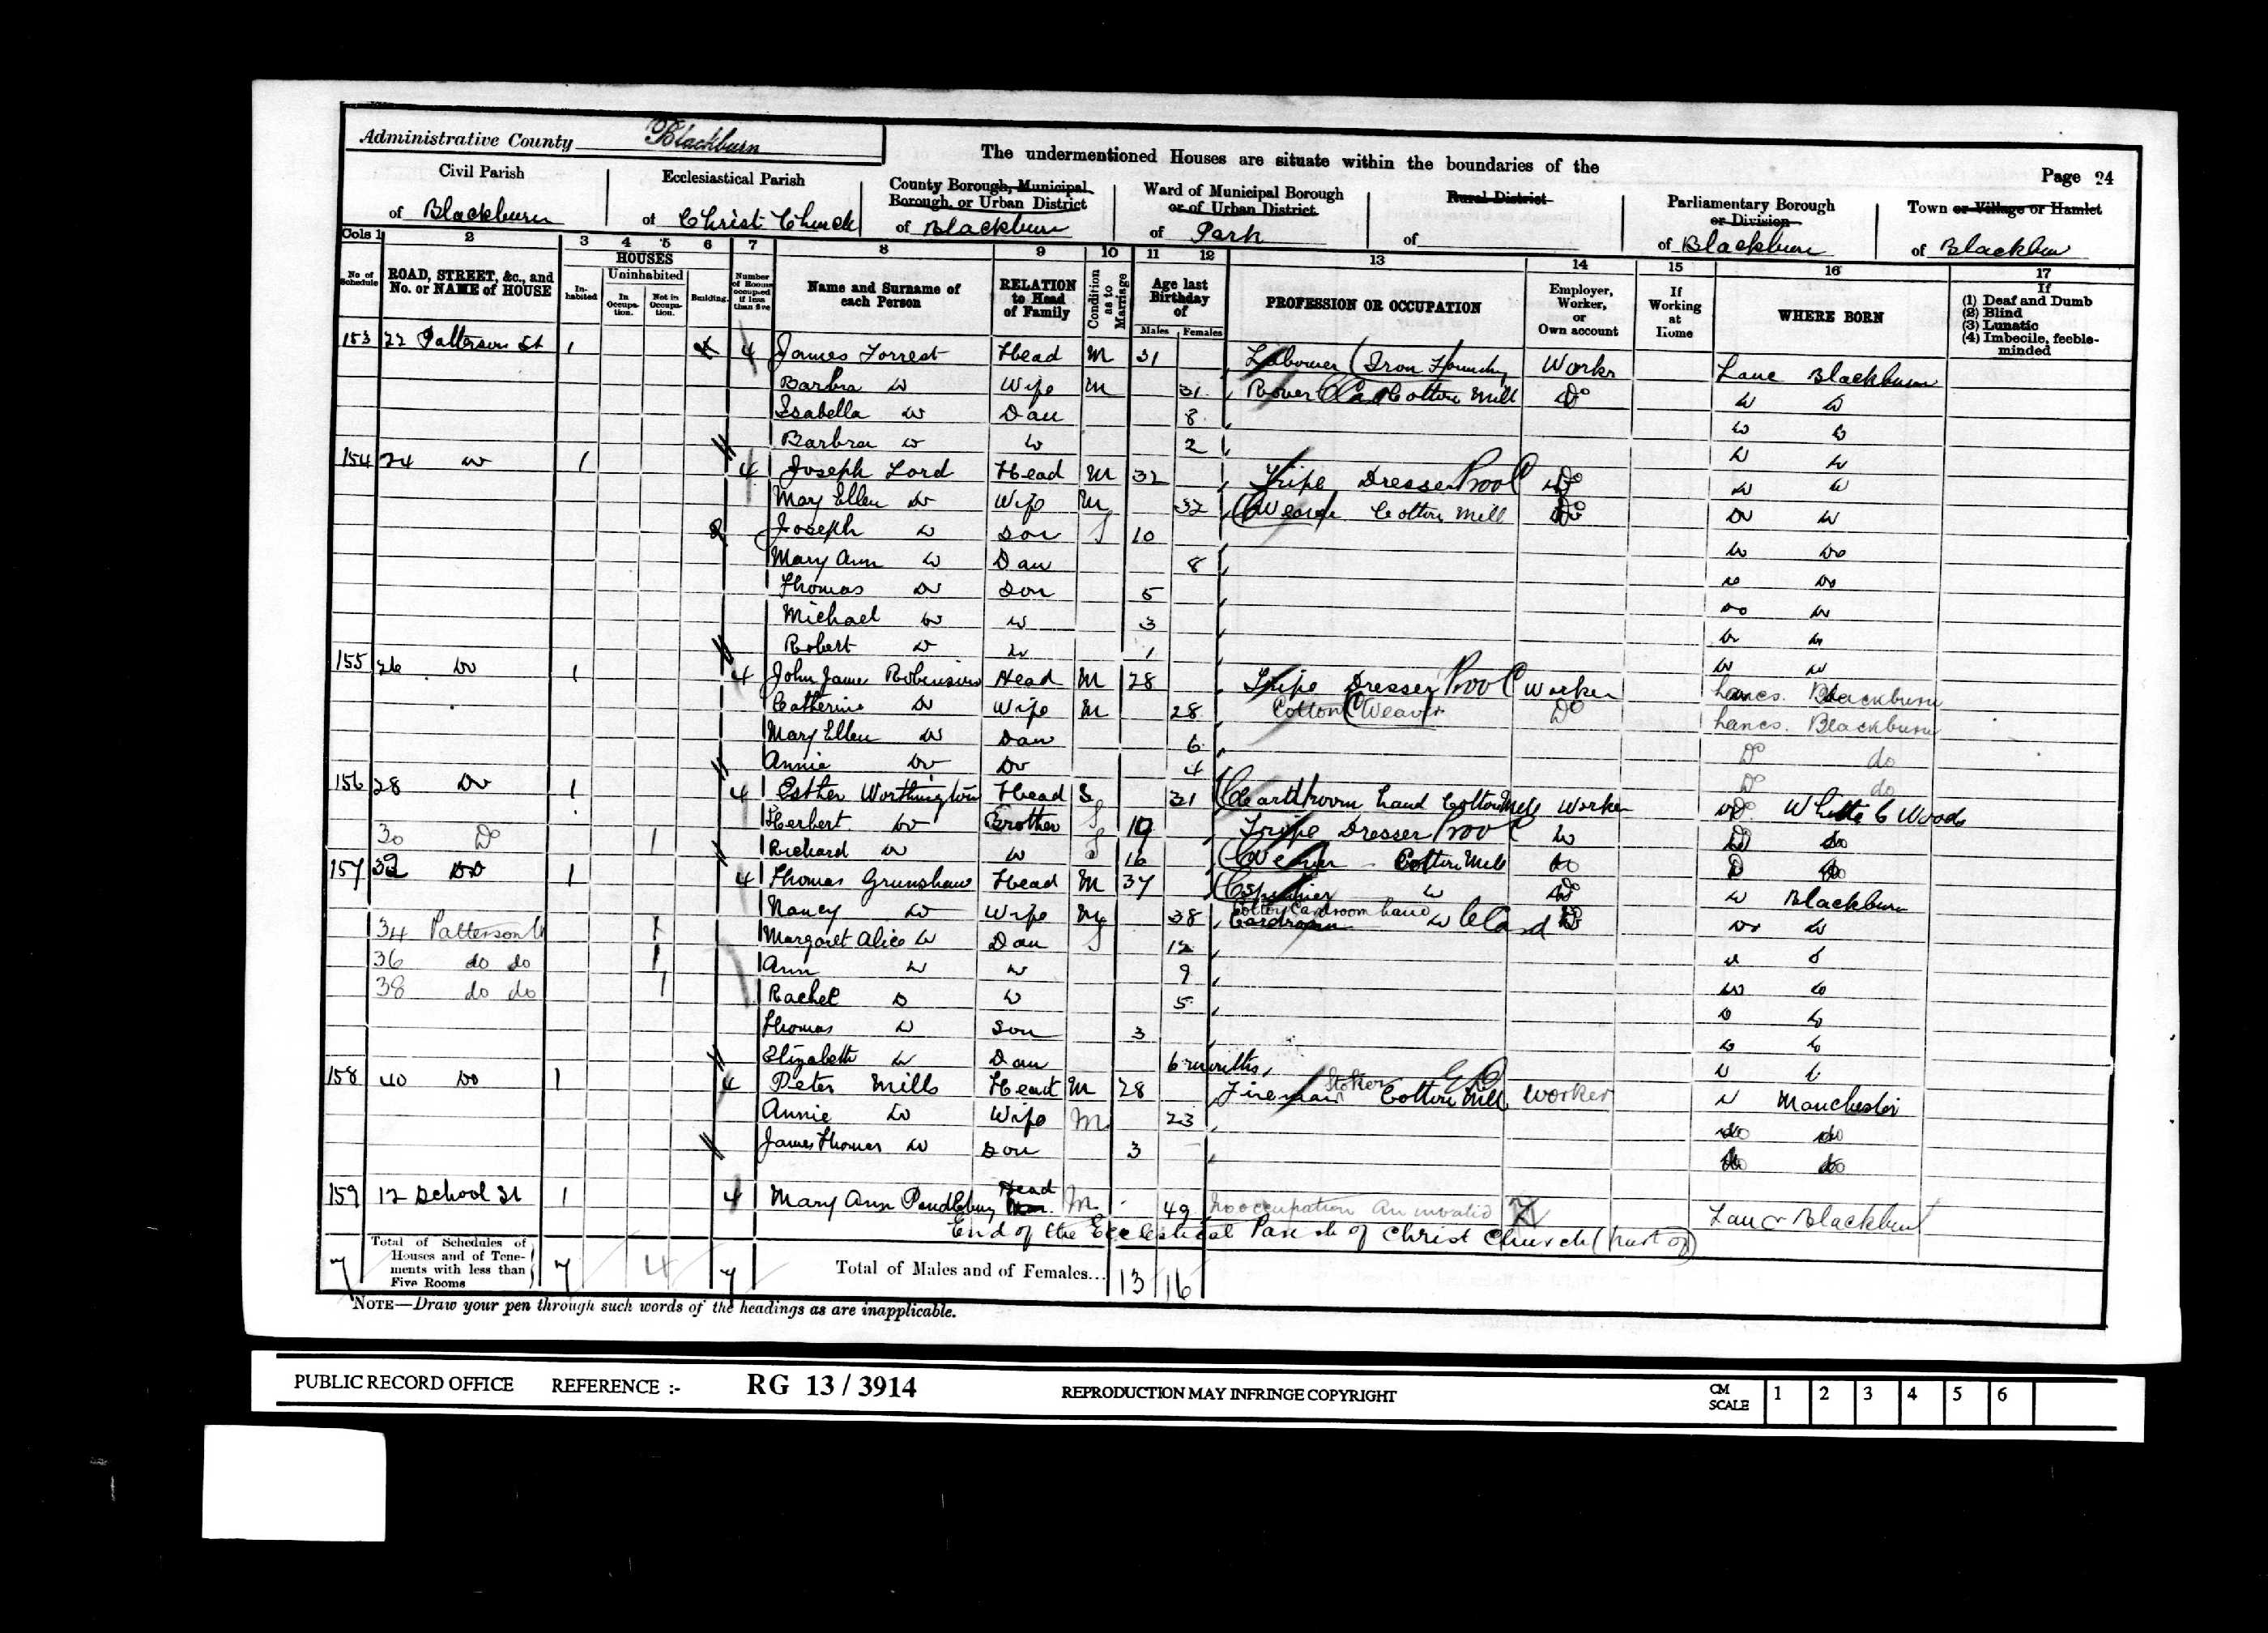 Administrative County Blackburn
The undermentioned Houses are situate within the boundaries of the
Page 24
Civil Parish of Blackburn
Ecclesiastical Parish of Christ Church
County Borough, Municipal Borough, or Urban District of Blackburn
Ward of Municipal Borough or of Urban District of Park
Rural District of
Parliamentary Borough or Division of Blackburn
Town or Village or Hamlet of Blackburn
Cols 1 2 3 4 5 6 7 8 9 10 11 12 13 14 15 16 17
No of Schedule
ROAD, STREET, &c., and No. or NAME of HOUSE
HOUSES
In-habited
Uninhabited
In Occupa-tion.
Not in Occupa-tion.
Building.
Number of Rooms occupied if less than five
Name and Surname of each Person
RELATION to Head of Family
Condition as to Marriage
Age last Birthday of
Males Females
PROFESSION OR OCCUPATION
Employer, Worker, or Own account
If Working at Home
WHERE BORN
If
(1) Deaf and Dumb
(2) Blind
(3) Lunatic
(4) Imbecile, feeble-minded
153 22 Patterson St 1 4 James Forrest Head M 31 Labourer (Iron Foundry Workr Lanc Blackburn
Barbra Do Wife M 31 Cotton Mill Do Do Do
Isabella Do Dau 8 Do Do
Barbra Do Do 2 Do Do
154 24 Do 1 4 Joseph Lord Head M 32 Tripe Dresser Do Do Do
Mary Ellen Do Wife M 32 Weaver Cotton Mill Do Do Do
Joseph Do Son S 10 Do Do
Mary Ann Do Dau 8 Do Do
Thomas Do Son 5 Do Do
Michael Do Do 3 Do Do
Robert Do Do 1 Do Do
155 26 Do 1 4 John James Robinson Head M 28 Tripe Dresser Worker Lancs. Blackburn
Catherine Do Wife M 28 Cotton Weaver Do Lancs. Blackburn
Mary Ellen Do Dau 6 Do do
Annie Do Do 4 Do do
156 28 Do 1 4 Esther Worthington Head S 31 Cardroom hand Cotton Mill Worker Do
Herbert Do Brother S 19 Tripe Dresser Do Do Do
30 Do 1 Richard Do Do S 16 Weaver Cotton Mill Do Do Do
157 32 Do 1 4 Thomas Grunshaw Head M 37 Do Do Do Blackburn
Nancy Do Wife M 38 Cotton Cardroom hand Do Do Do Do
34 Patterson 1 Margaret Alice Do Dau S 12 Do Do
36 do do 1 Ann Do Do 9 Do Do
38 do do 1 Rachel Do Do 5 Do Do
Thomas Do Son 3 Do Do
Elizabeth Do Dau 6 months Do Do
158 40 Do 1 4 Peter Mills Head M 28 Fireman Stoker Cotton Mill Worker Do Manchester
Annie Do Wife M 23 do do
James Thomas Do Son 3 do do
159 12 School St 1 4 Mary Ann Pendlebury Head M 49 No occupation An invalid Lanc Blackburn
End of the Eccleastical Parish of Christ Church (part of)
Total of Schedules of Houses and of Tene-ments with less than Five Rooms
7 7 4 7
Total of Males and of Females... 13 16
NOTE—Draw your pen through such words of the headings as are inapplicable.
PUBLIC RECORD OFFICE REFERENCE :- RG 13 / 3914 REPRODUCTION MAY INFRINGE COPYRIGHT CM SCALE 1 2 3 4 5 6